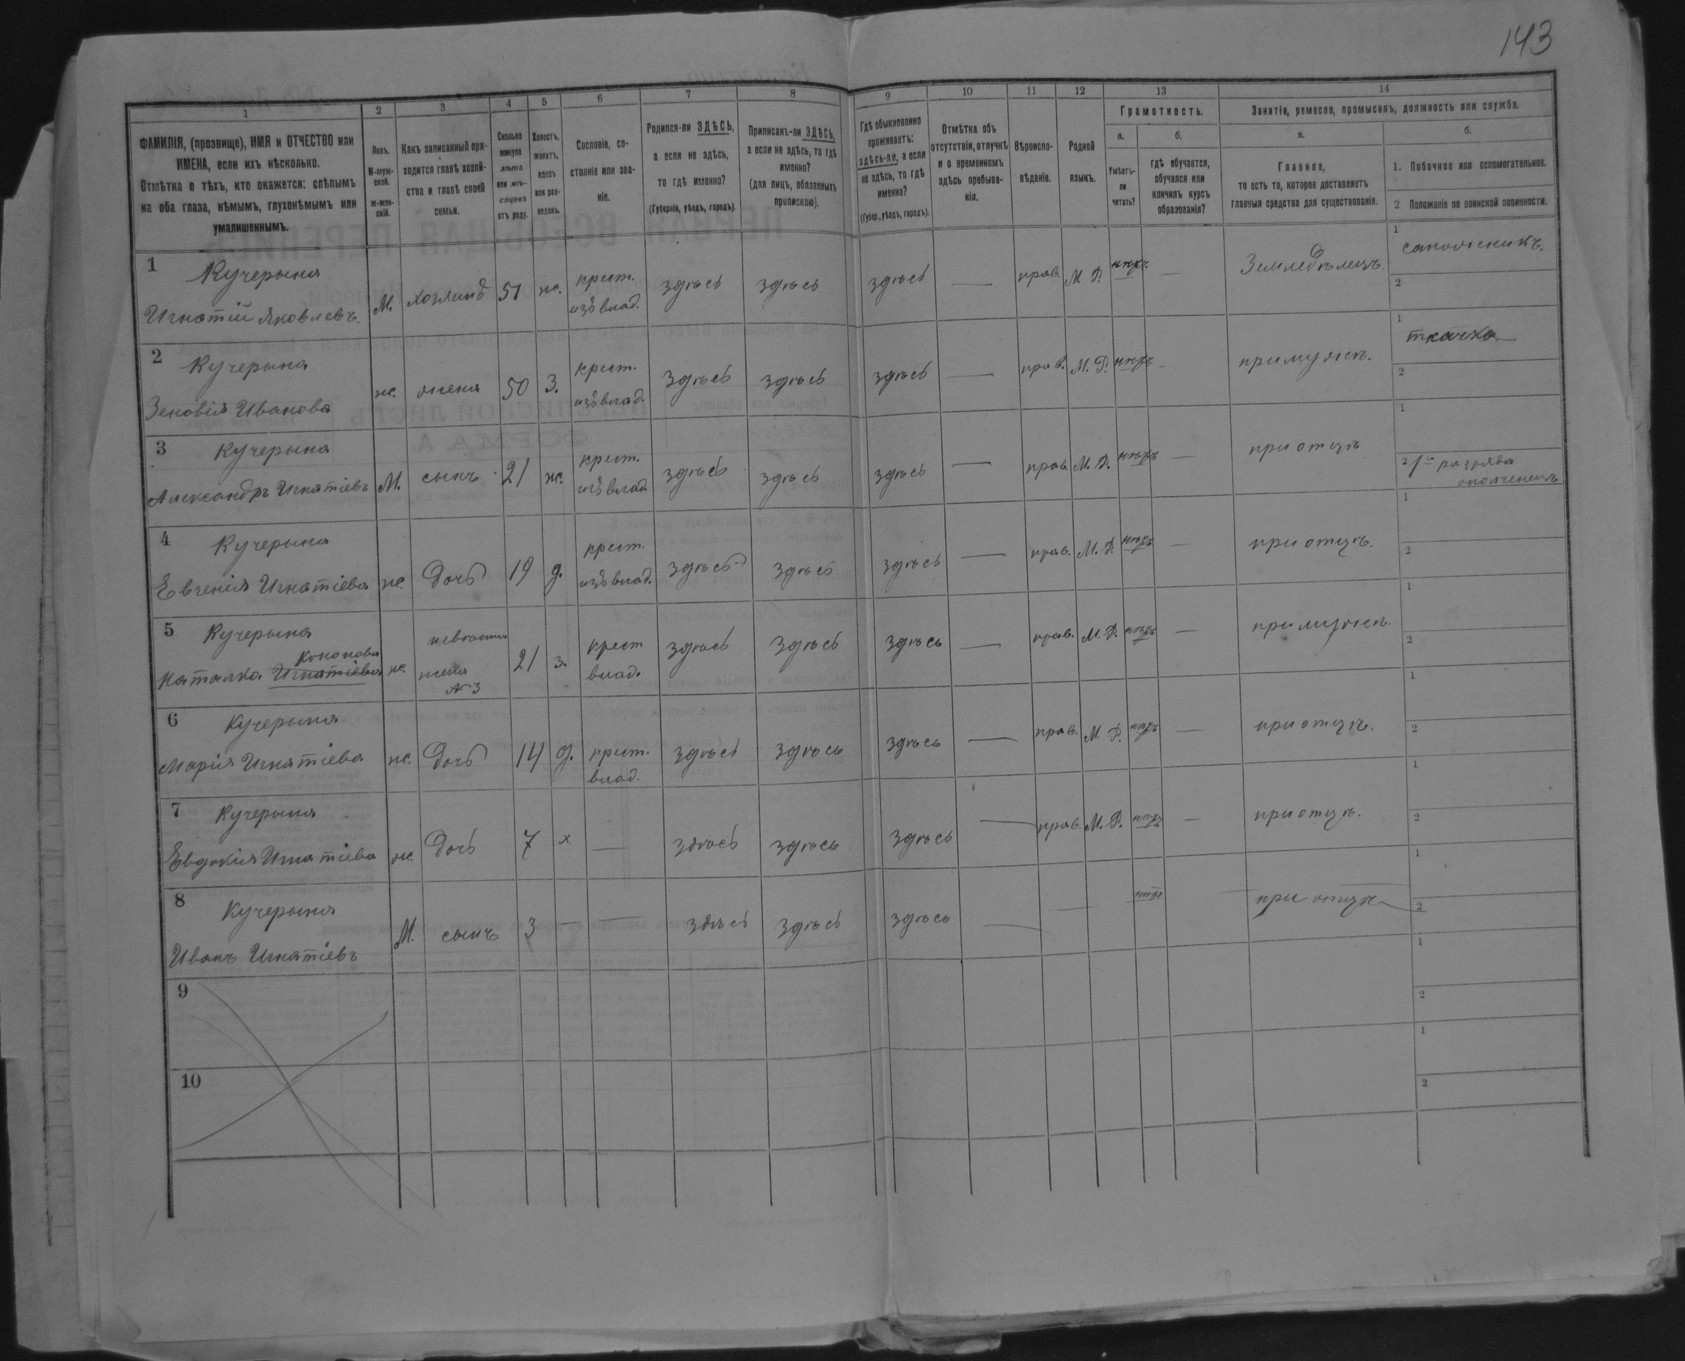 143
1
2
3
4
5
6
7
8
9
10
11
12
13
14
ФАМИЛІЯ, (прозвище), ИМЯ и ОТЧЕСТВО или
ИМЕНА, если ихъ нѣсколько.
Отмѣтка о тѣхъ, кто окажется: слѣпымъ
на оба глаза, нѣмымъ, глухонѣмымъ или
умалишеннымъ.
Полъ.
М-муж-
ской.
ж-жен-
скій.
Какъ записанный при-
ходится главѣ хозяй-
ства и главѣ своей
семьи.
Сколько
минуло
лѣтъ
или мѣ-
сяцевъ
отъ роду.
Холостъ,
женатъ,
вдовъ
или раз-
веденъ.
Сословіе, со-
стояніе или зва-
ніе.
Родился-ли ЗДѢСЬ,
а если не здѣсь,
то гдѣ именно?
(Губернія, уѣздъ, городъ).
Приписанъ-ли ЗДѢСЬ,
а если не здѣсь, то гдѣ
именно?
(для лицъ, обязанныхъ
припискою).
Гдѣ обыкновенно
проживаетъ:
здѣсь-ли, а если
не здѣсь, то гдѣ
именно?
(Губер., уѣздъ, городъ).
Отмѣтка объ
отсутствіи, отлучкѣ
и о временномъ
здѣсь пребыва-
ніи.
Вѣроиспо-
вѣданіе.
Родной
языкъ.
Грамотность.
а.
Умѣетъ-
ли
читать?
б.
гдѣ обучается,
обучался или
кончилъ курсъ
образованія?
Занятіе, ремесло, промыселъ, должность или служба.
а.
Главное,
то есть то, которое доставляетъ
главныя средства для существованія.
б.
1. Побочное или вспомогательное.
2 Положеніе по воинской повинности.
1 Кучерына
Игнатій Яковлевъ М. хозяинъ 51 ж. крест. изъ влад. здѣсь здѣсь здѣсь — прав. М. Р. нѣтъ — Земледѣлецъ. 1 сапожникъ.
2
2 Кучерына
Зеновія Иванова ж. жена 50 З. крест. изъ влад. здѣсь здѣсь здѣсь — прав. М. Р. нѣтъ — при мужѣ. 1 ткачка
2
3 Кучерына
Александръ Игнатіевъ М. сынъ 21 ж. крест. изъ влад. здѣсь здѣсь здѣсь — прав. М. Р. нѣтъ — при отцѣ 1
2 1го разряда
ополченецъ
4 Кучерына
Евгенія Игнатіева ж. дочь 19 д. крест. изъ влад. здѣсь здѣсь здѣсь — прав. М. Р. нѣтъ — при отцѣ. 1
2
5 Кучерына
Кононова
Наталка Игнатіева ж невѣстка жена №3 21 з. крест влад. здѣсь здѣсь здѣсь — прав. М. Р. нѣтъ — при мужѣ. 1
2
6 Кучерына
Марія Игнатіева ж. дочь 14 д. крест. влад. здѣсь здѣсь здѣсь — прав. М. Р. нѣтъ — при отцѣ. 1
2
7 Кучерына
Евдокія Игнатіева ж. дочь 7 х — здѣсь здѣсь здѣсь — прав. М. Р. нѣтъ — при отцѣ. 1
2
8 Кучерына
Иванъ Игнатіевъ М. сынъ 3 — — здѣсь здѣсь здѣсь — — нѣтъ при отцѣ 1
2
9
1
2
10
1
2